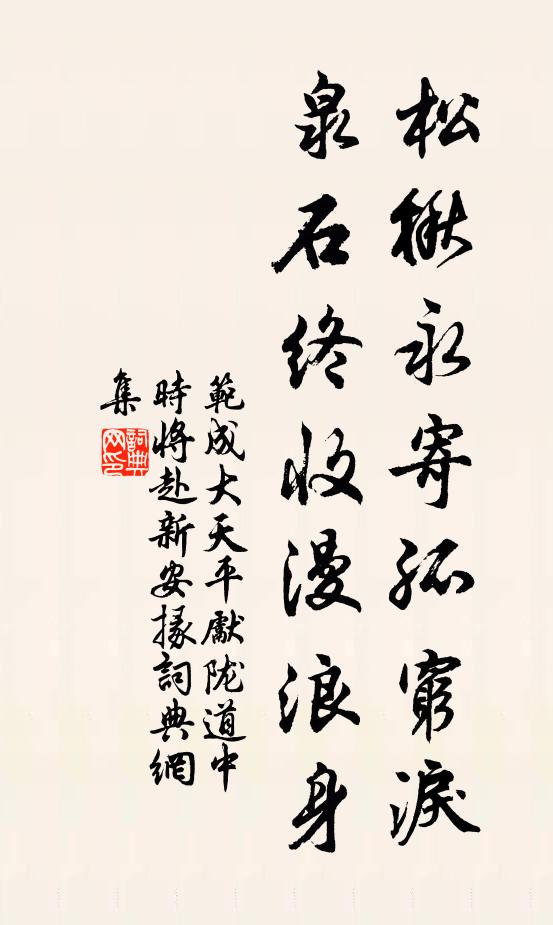 松楸永寄孤窮淚
泉石終收漫浪身
範成大天平獻陇道中
時將赴新安掾詞典網
集
詞典
网印